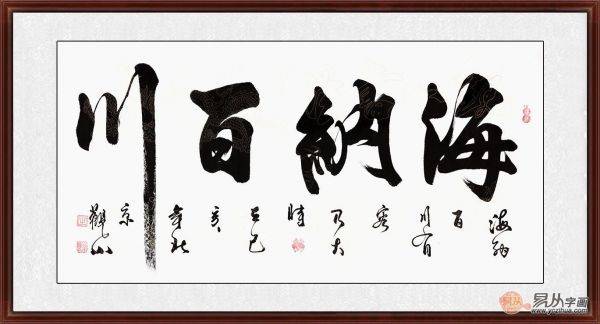 海納百川
海納百川有容乃大時在己亥年北京觀山
易从字画
www.yczihua.com